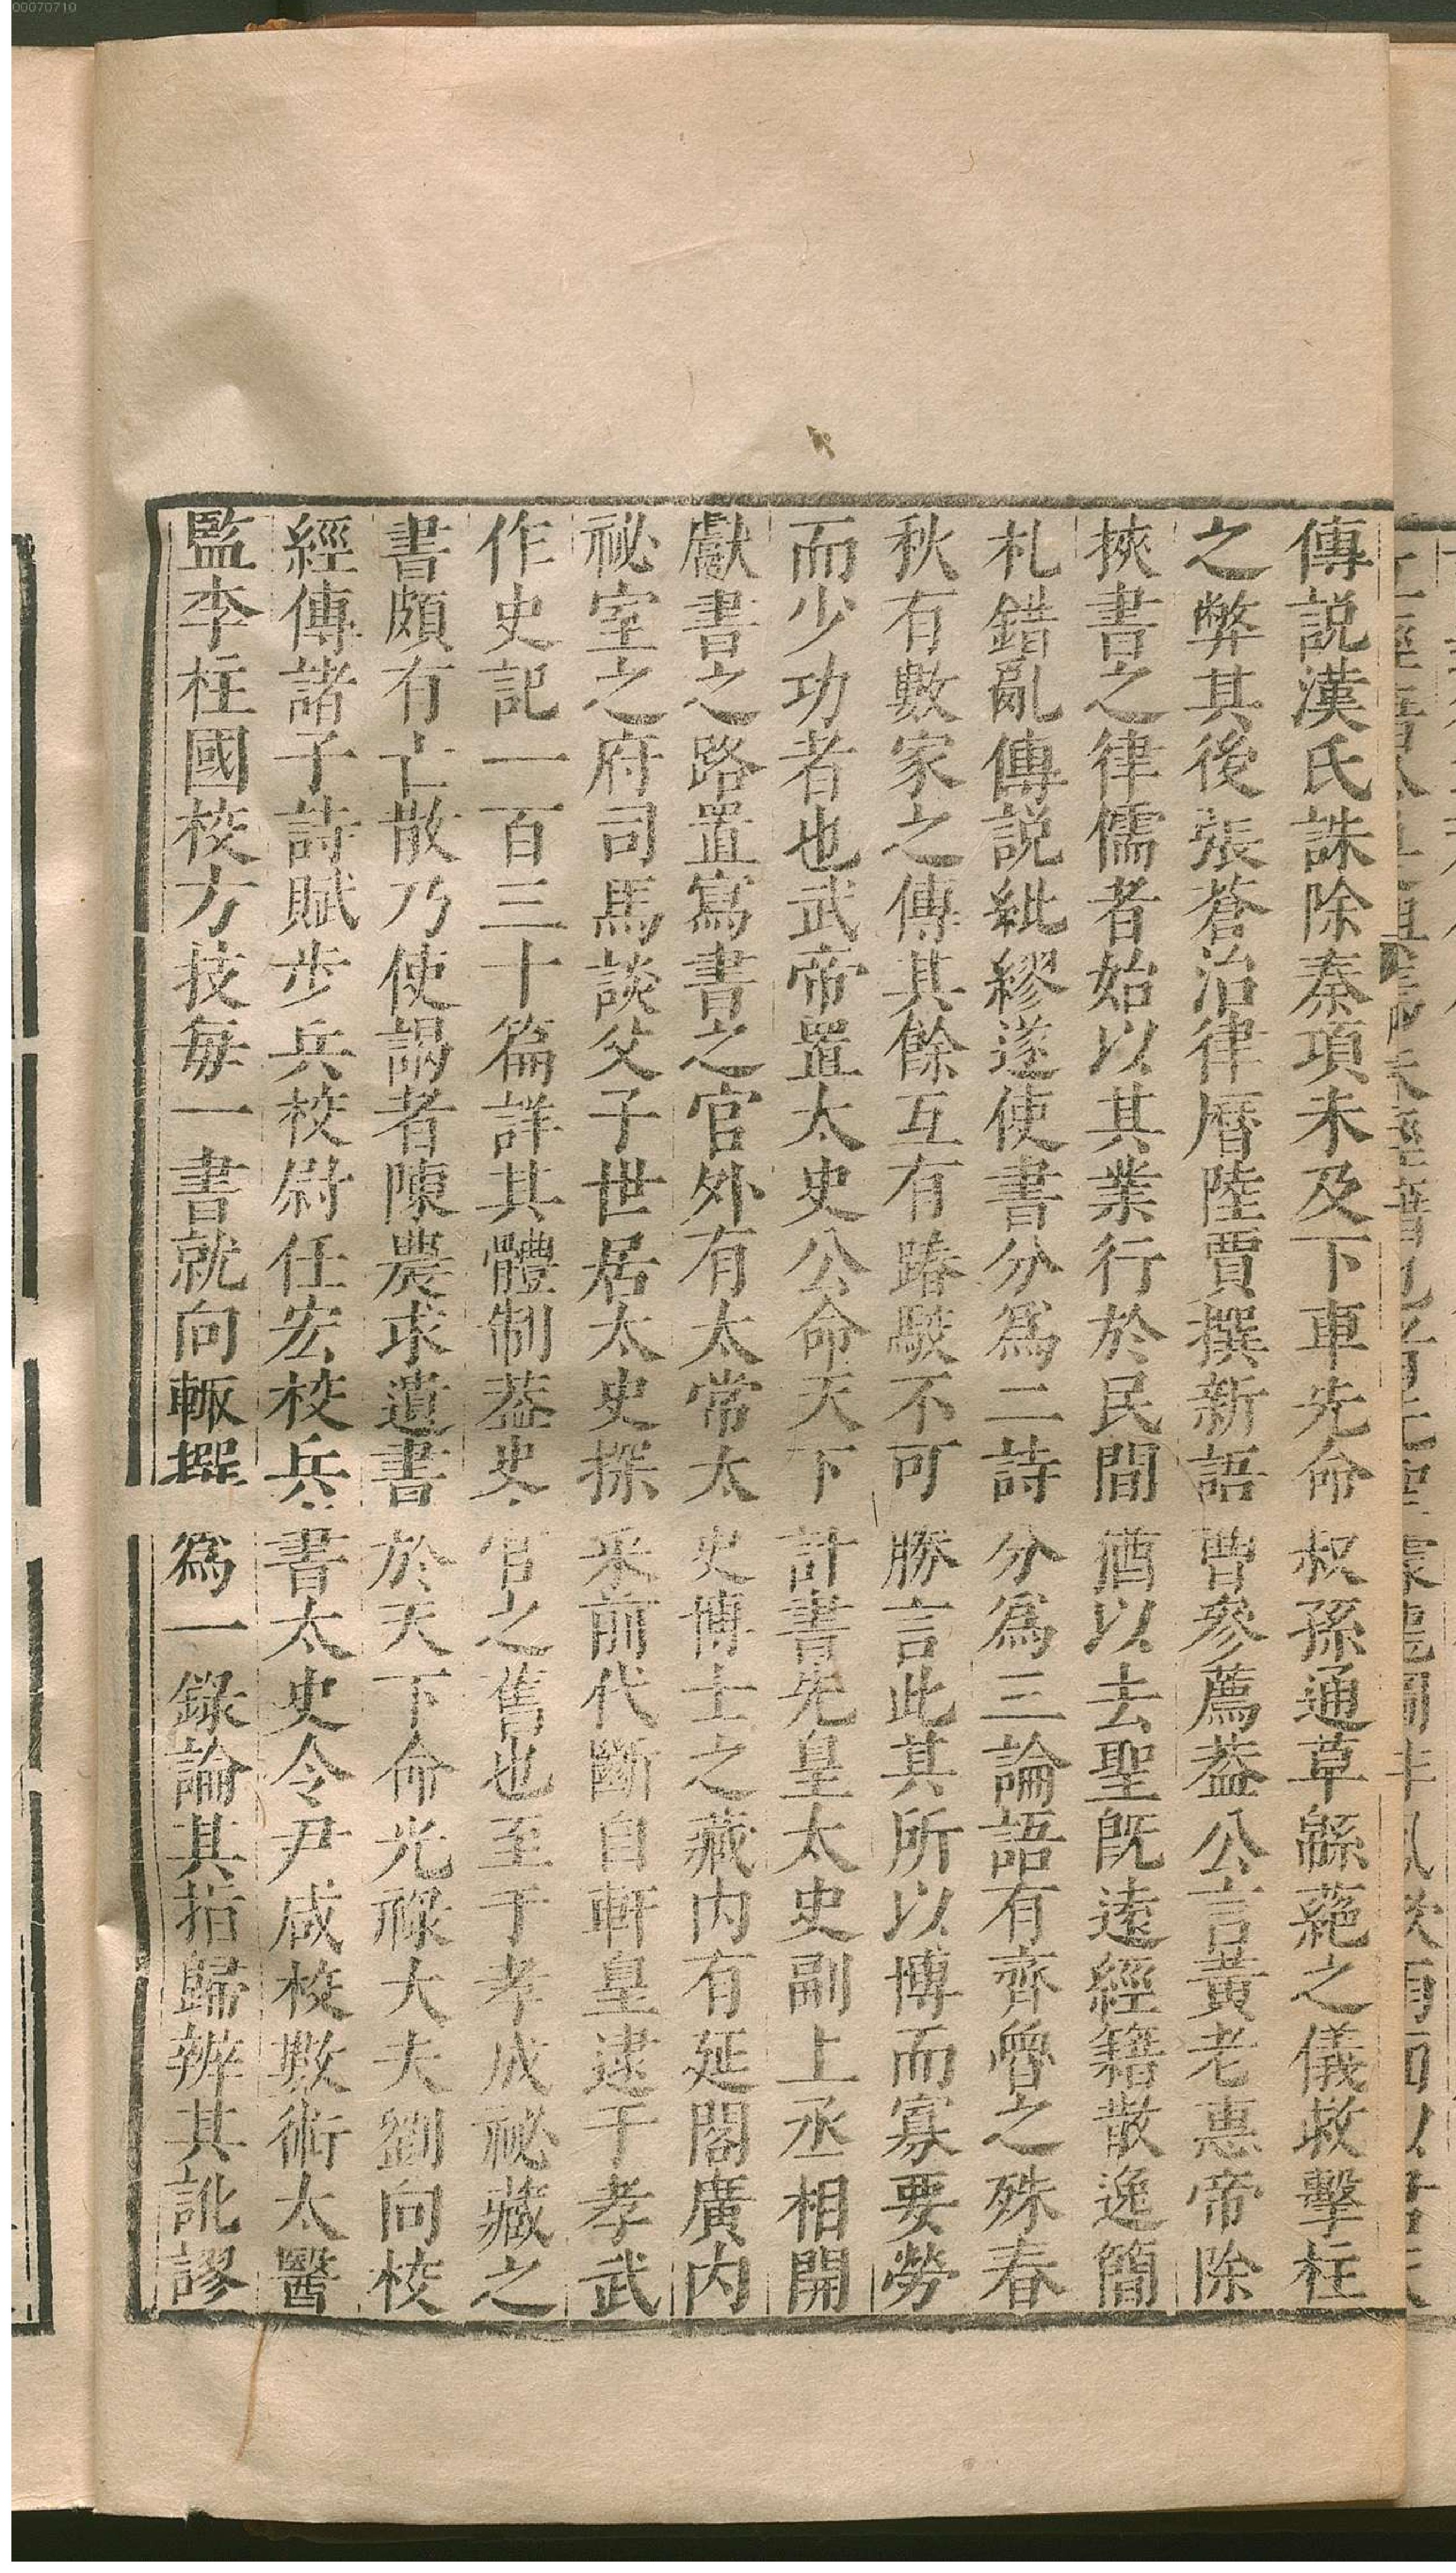 00070710
傳説漢氏誅除秦項未及下車先命叔孫通草緜蕝之儀救擊柱
之弊其後張蒼治律曆陸賈撰新語曹參薦葢公言黃老惠帝除
挾書之律儒者始以其業行於民間酋以去聖旣遠經籍散逸簡
札錯亂傳説紕繆遂使書分爲二詩分爲三論語有齊魯之殊春
秋有數家之傳其餘互有踳駮不可勝言此其所以博而寡要勞
而少功者也武帝置太史公命天下計書先皇太史副上丞相開
獻書之路置寫書之官外有太常太史博士之藏内有延閣廣内
祕室之府司馬談父子世居太史探采前代斷自軒皇逮于孝武
作史記一百三十篇詳其體制葢史官之舊也至于孝成祕藏之
書頗有亡散乃使謁者陳農求遺書於天下命光祿大夫劉向校
經傳諸子詩賦步兵校尉任宏校兵書太史令尹咸校數術太醫
監李柱國校方技毎一書就向輒撰爲一錄論其指歸辨其訛謬